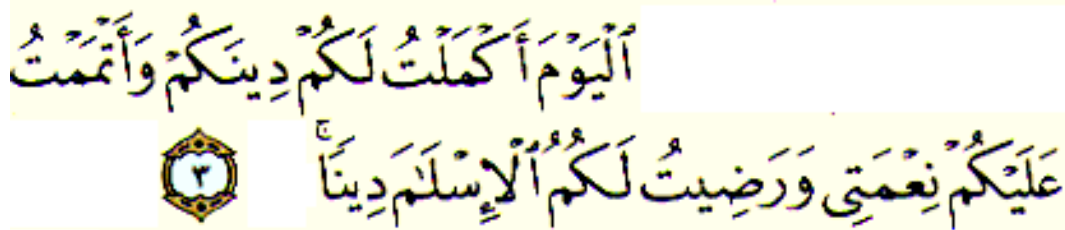 ٱلْيَوْمَ أَكْمَلْتُ لَكُمْ دِينَكُمْ وَأَتْمَمْتُ
عَلَيْكُمْ نِعْمَتِى وَرَضِيتُ لَكُمُ ٱلْإِسْلَٰمَ دِينًاۚ ٣